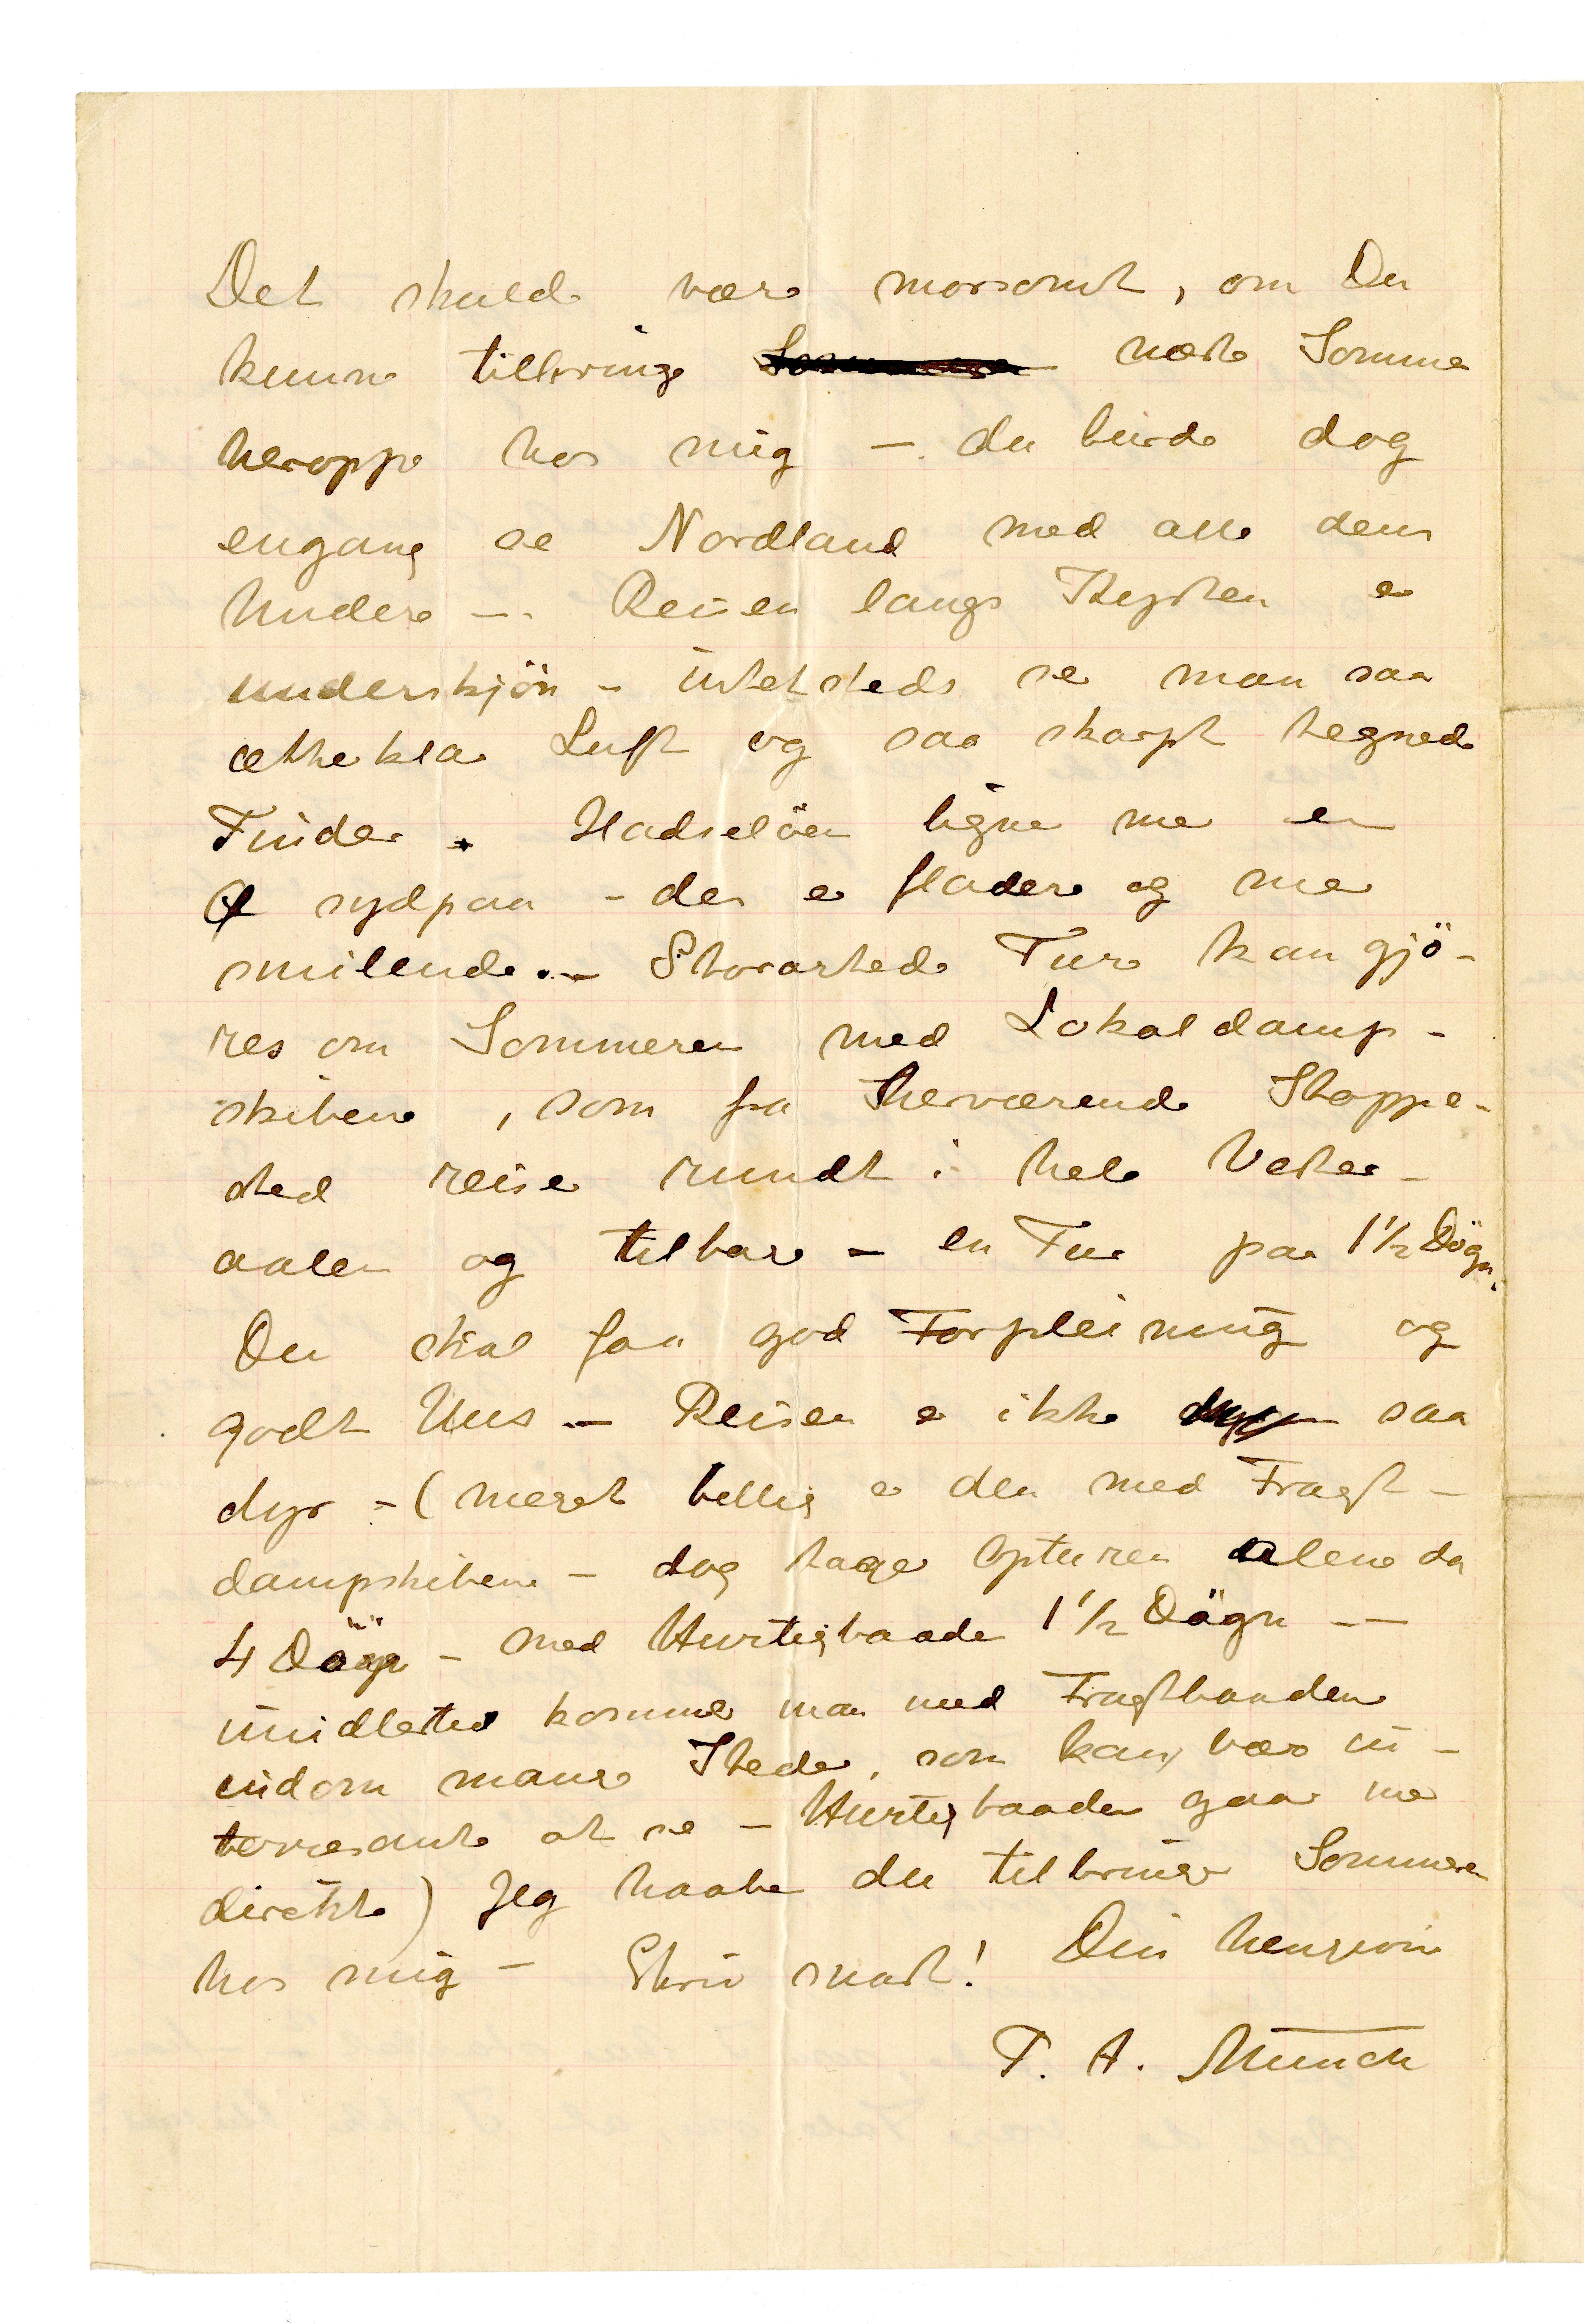 Det skulde være morsomt, om Du
kunne tilbringe Sommeren næste Sommer
heroppe hos mig – du burde dog
engang se Nordland med alle dens
Undere – Reisen langs Kysten er
underskjön – intetsteds ser man saa
ætherklar Luft og saa skarpt tegnede
Tinder. Hadselöen ligner mer en
Ø sydpaa – den er fladere og mer
smilende. – Storartede Ture kan gjö-
res om Sommeren med Lokaldamp-
skibene, som fra herværende Stoppe-
sted reiser rundt i hele Vester-
aalen og tilbage – en Tur paa 1½ Dögn.
Du skal faa god Forpleining og
godt Hus – Reisen er ikke dyr saa
dyr – (meget billig er den med Fragt-
dampskibene – dog tager Opturen alene da
4 Dögn – med Hurtigbaade 1½ Dögn –
imidlertid kommer man med Fragtbaadene
indom mange Steder, som kan være in-
terresante at se – Hurtigbaaden gaar mer
direkte) Jeg haaber du tilbringer Sommeren
hos mig – Skriv snart! Din hengivne
P. A. Munch